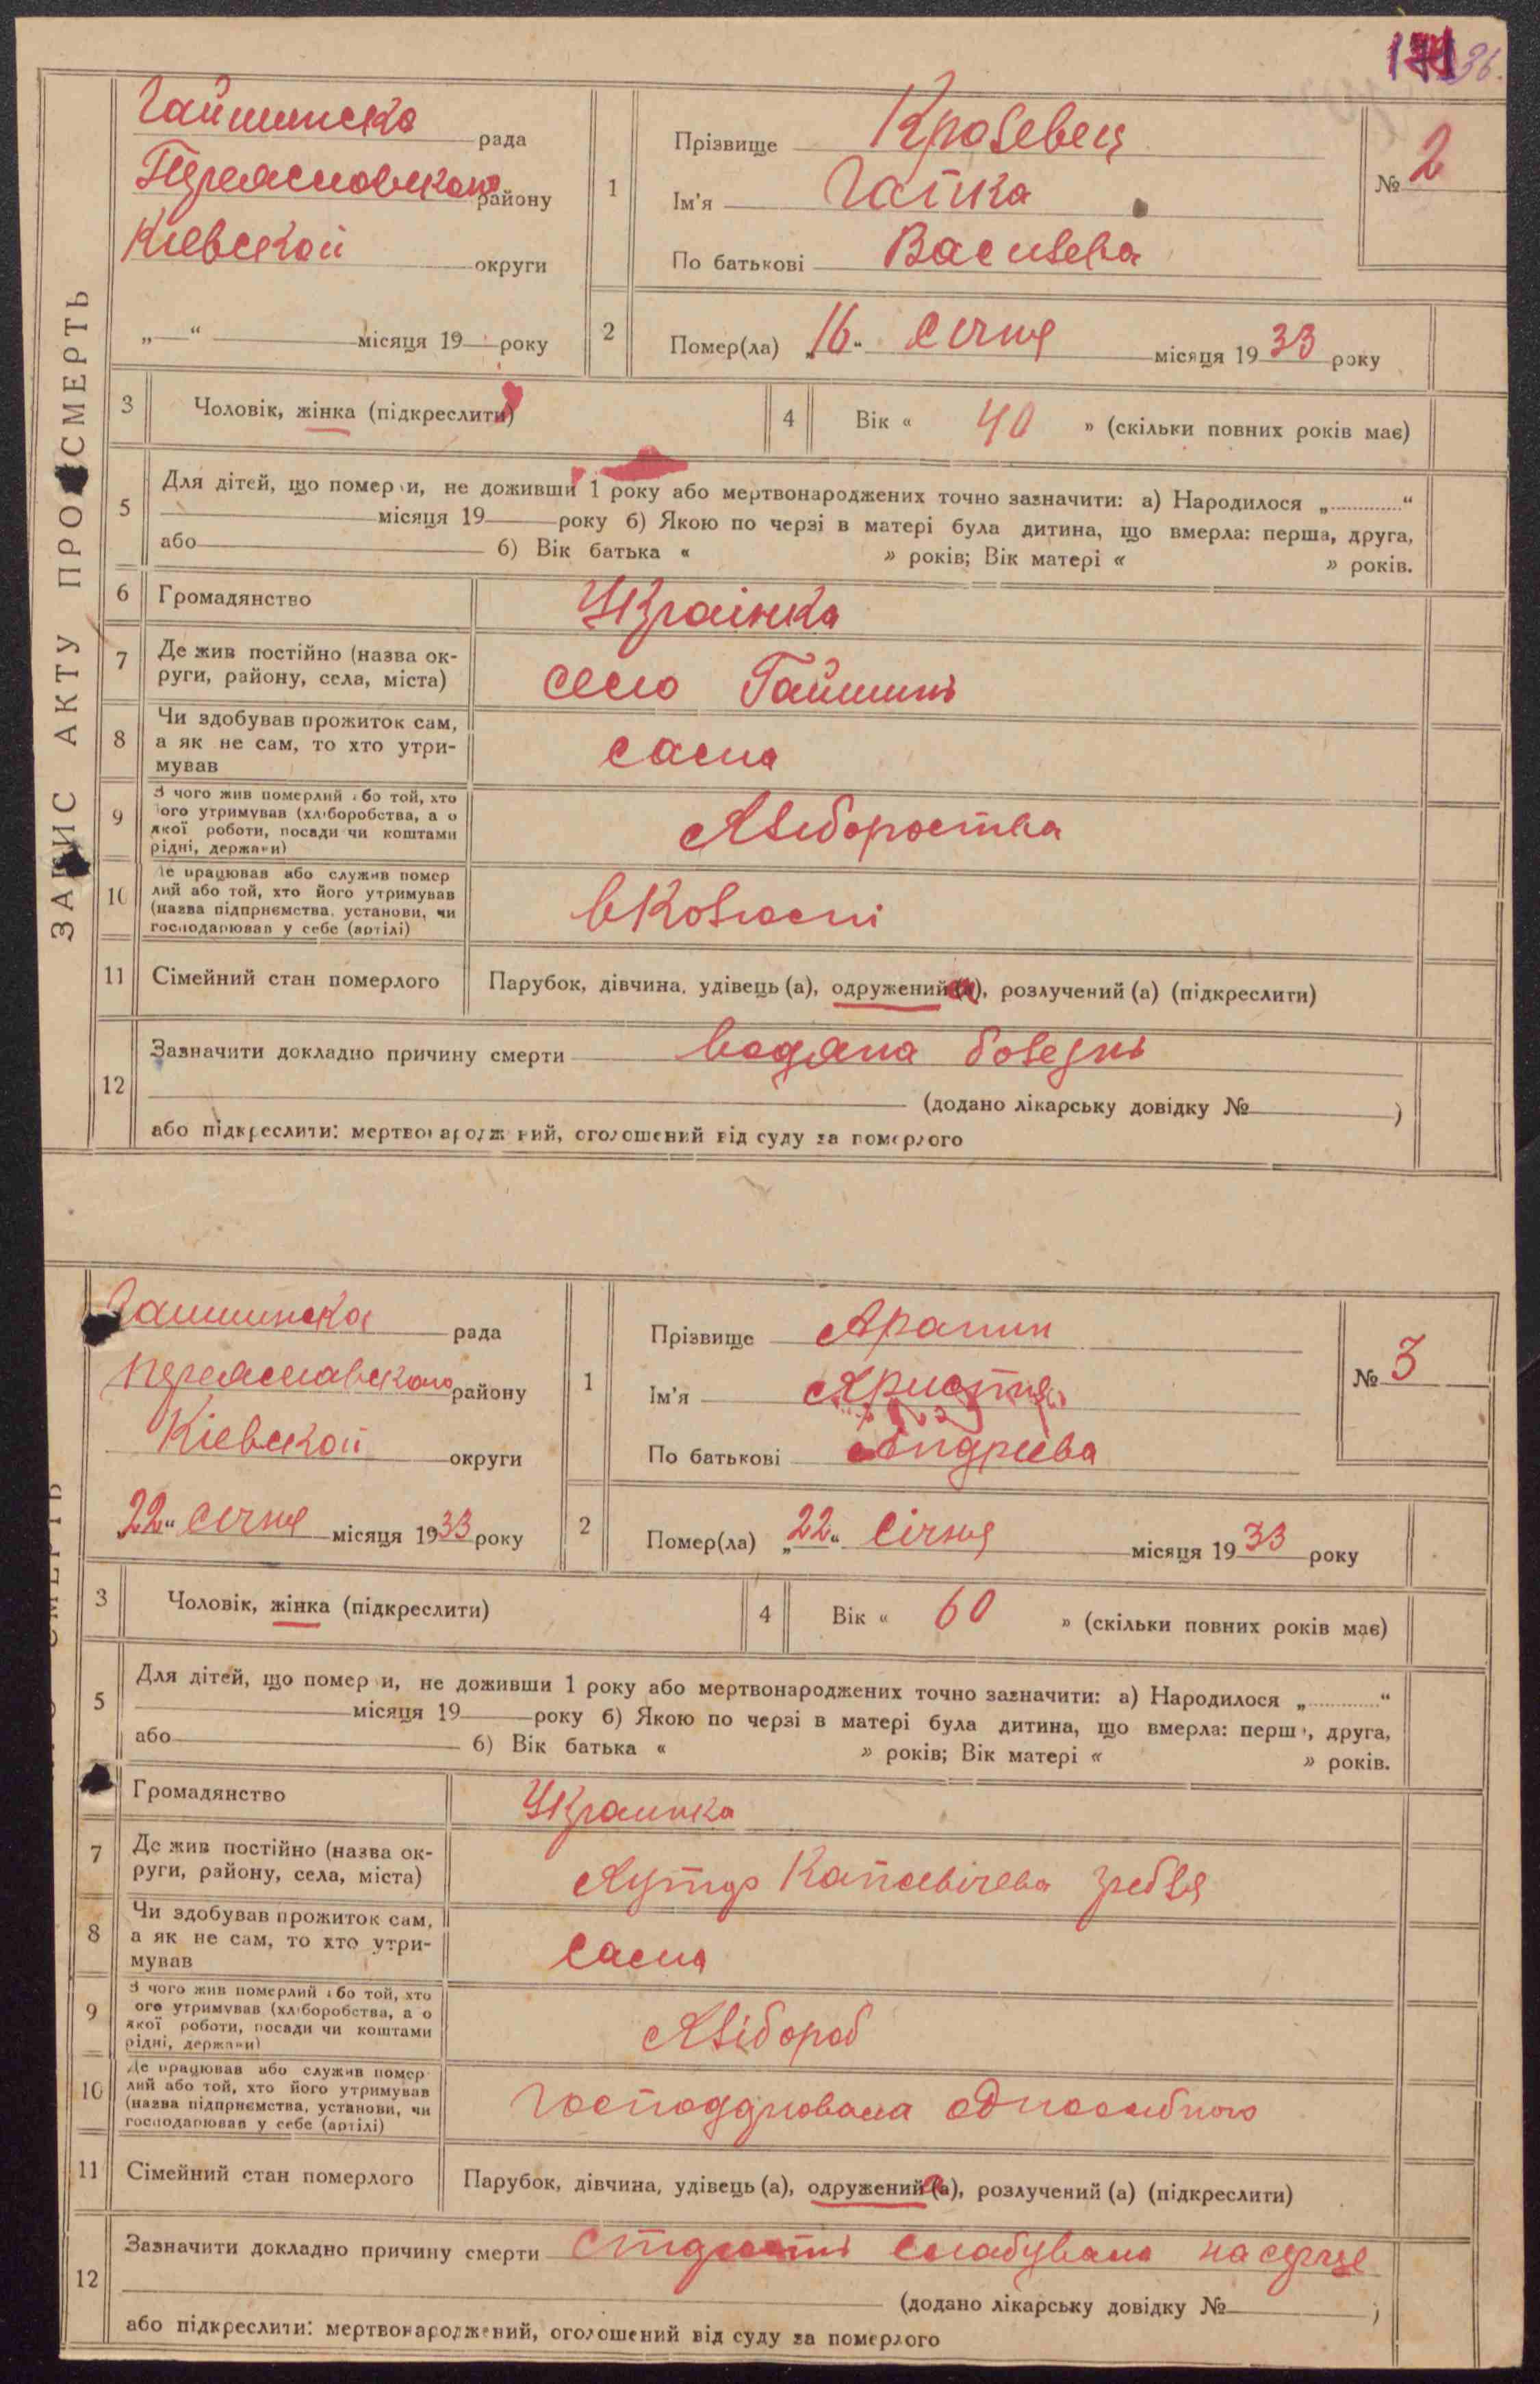 36.
ЗАПИС АКТУ ПРО СМЕРТЬ
Гайшинска рада
Переясловского району
Кіевской округи
„—“ місяця 19 року
1
Прізвище Кролевец
Ім'я Гапка
По батькові Василева
№ 2
2
Помер(ла) „16“ Січня місяця 1933 року
3 Чоловік, жінка (підкреслити)
4 Вік « 40 » (скільки повних років має)
5 Для дітей, що померли, не доживши 1 року або мертвонароджених точно зазначити: а) Народилося „............“
місяця 19 року б) Якою по черзі в матері була дитина, що вмерла: перша, друга,
або б) Вік батька « » років; Вік матері « » років.
6 Громадянство Украінка
7 Де жив постійно (назва ок-
руги, району, села, міста) село Гайшинь
8 Чи здобував прожиток сам,
а як не сам, то хто утри-
мував сама
9 З чого жив померлий або той, хто
його утримував (хліборобства, або
якої роботи, посади чи коштами
рідні, держави) Хлібороства
10 Де працював або служив помер
лий або той, хто його утримував
(назва підприємства, установи, чи
господарював у себе (артілі) вколгоспі
11 Сімейний стан померлого Парубок, дівчина, удівець (а), одружений (а), розлучений (а) (підкреслити)
12 Зазначити докладно причину смерти водяна болезнь
(додано лікарську довідку № )
або підкреслити: мертвонароджений, оголошений від суду за померлого
Гашшинска рада
Переяславского району
Кіевской округи
22“ січня місяця 1933 року
1
Прізвище Арапин
Ім'я Христия
По батькові Андріева
№ 3
2
Помер(ла) „22“ Січня місяця 1933 року
3 Чоловік, жінка (підкреслити)
4 Вік « 60 » (скільки повних років має)
5 Для дітей, що померли, не доживши 1 року або мертвонароджених точно зазначити: а) Народилося „............“
місяця 19 року б) Якою по черзі в матері була дитина, що вмерла: перша, друга,
або б) Вік батька « » років; Вік матері « » років.
Громадянство Украинка
7 Де жив постійно (назва ок-
руги, району, села, міста) Хутор гребля
8 Чи здобував прожиток сам,
а як не сам, то хто утри-
мував Сама
9 З чого жив померлий або той, хто
його утримував (хліборобства, або
якої роботи, посади чи коштами
рідні, держави) Хлібороб
10 Де працював або служив помер
лий або той, хто його утримував
(назва підприємства, установи, чи
господарював у себе (артілі) Господарювала одноосібного
11 Сімейний стан померлого Парубок, дівчина, удівець (а), одружений (а), розлучений (а) (підкреслити)
12 Зазначити докладно причину смерти слабувала на серце
(додано лікарську довідку № )
або підкреслити: мертвонароджений, оголошений від суду за померлого